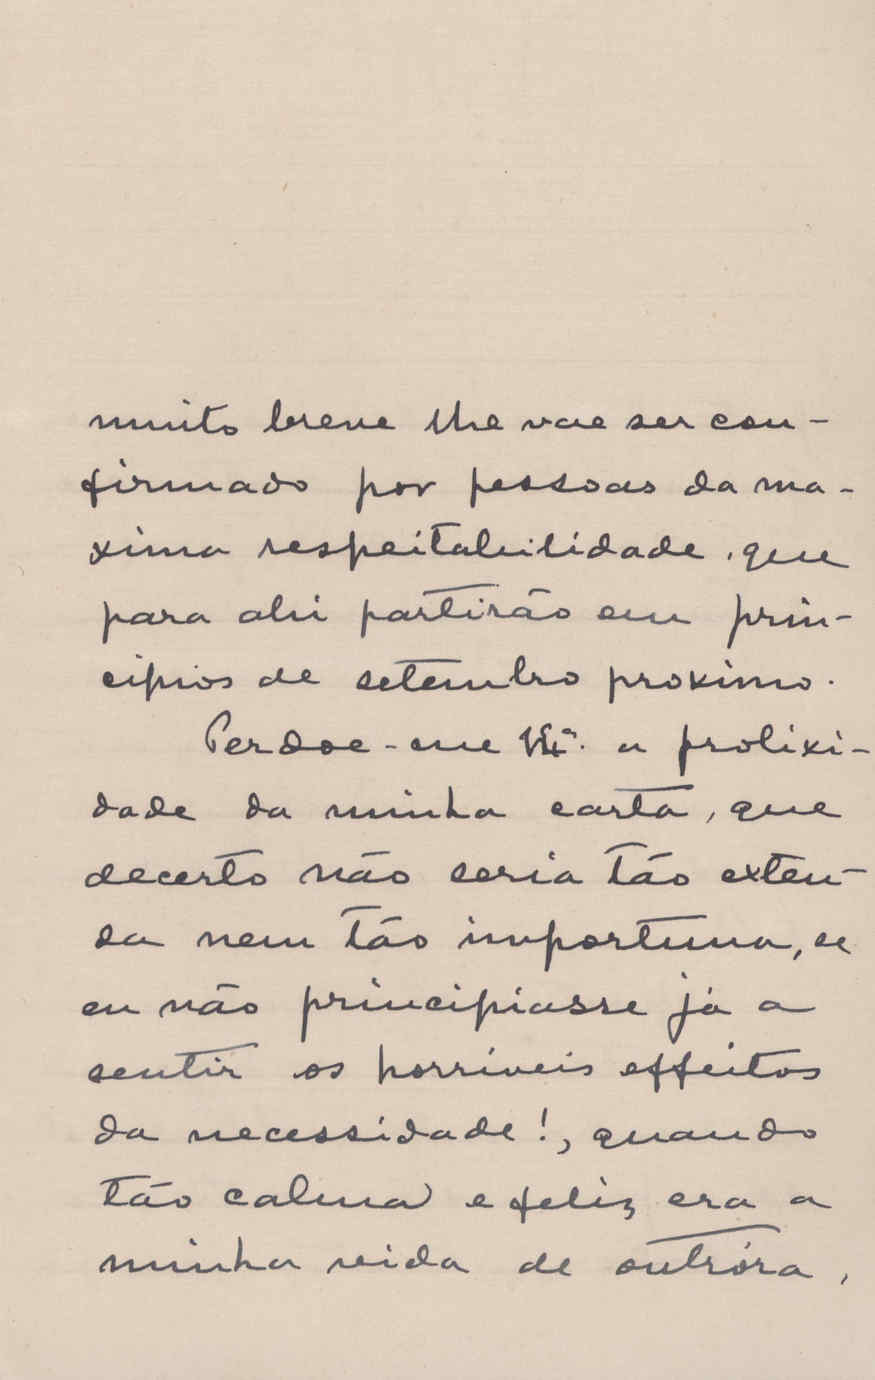 muito breve lhe vae ser con-
firmado por pessoas da ma-
xima respeitabilidade, que
para ahi partirão em prin-
cipios de setembro proximo.
Perdoe-me a prolixi-
dade da minha carta, que
decerto não seria tão exten-
sa nem tão importuna, se
eu não principiasse já a
sentir os horriveis effeitos
da necessidade!, quando
tão calma e feliz era a
minha vida de outróra,